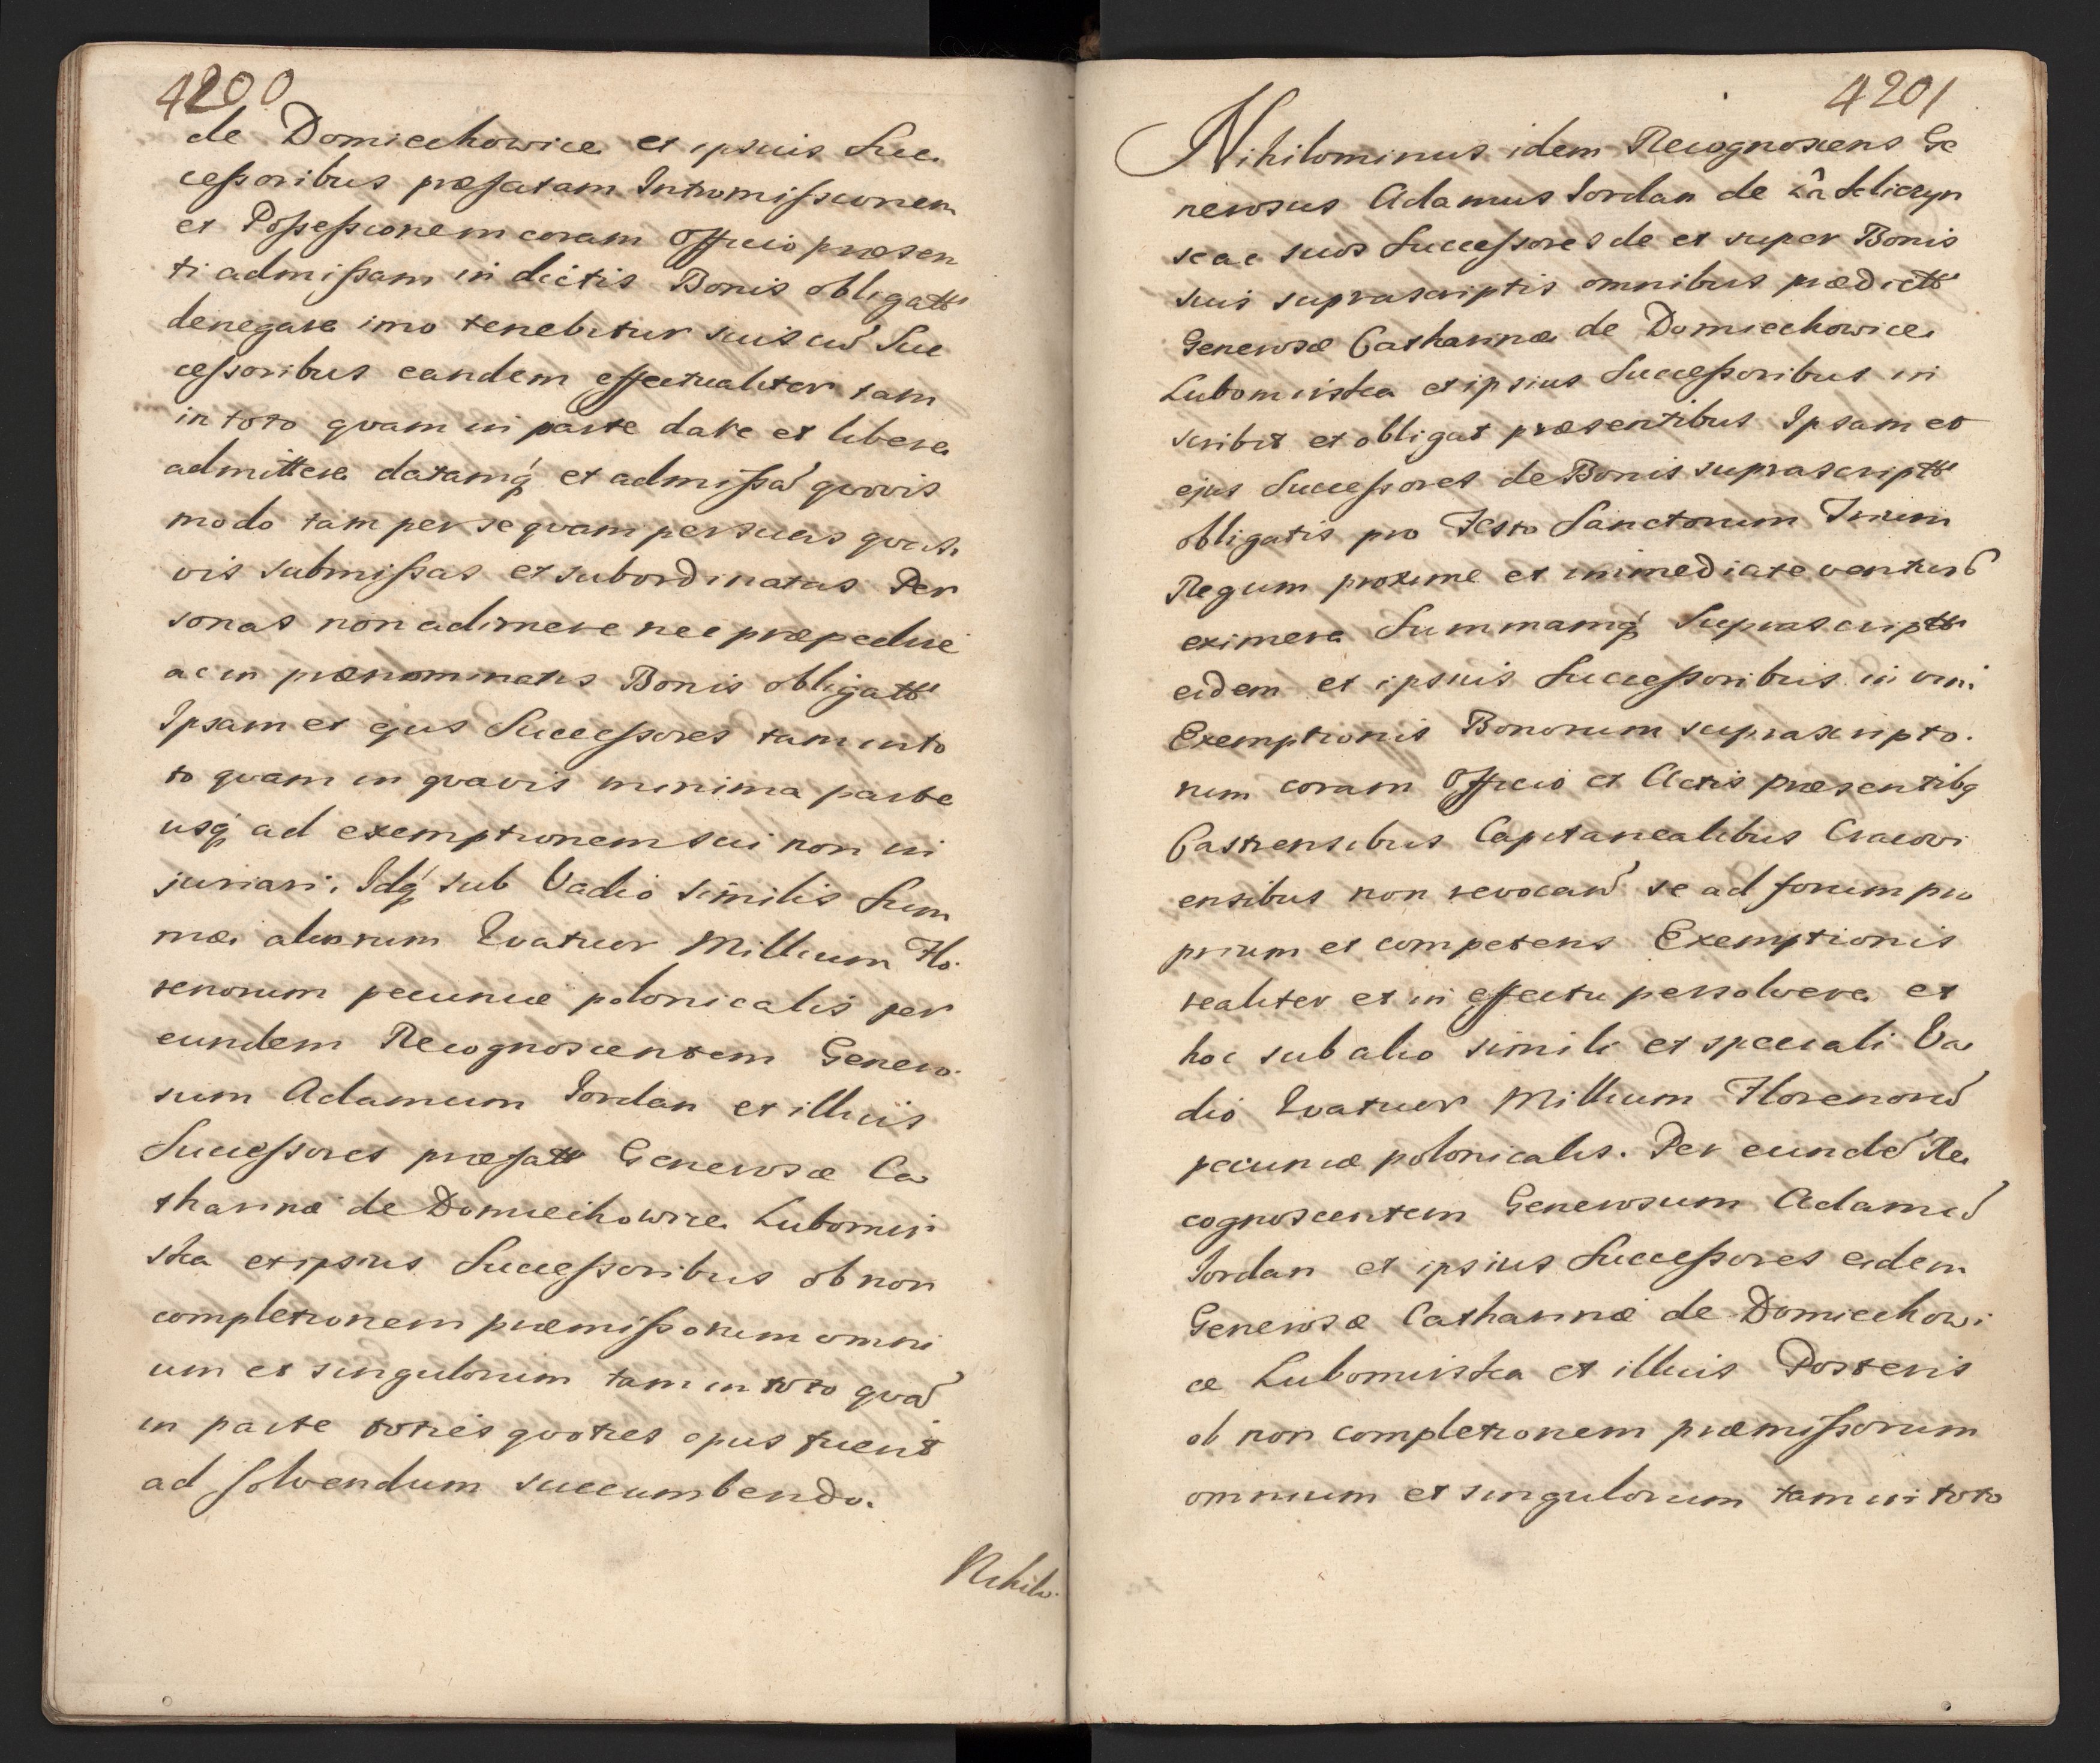 4200
de Domiechowice et ipsius Suc
cessoribus præfatam Intromissionem
et Possessionem coram Officio præsen
ti admissam in dictis Bonis obligatt
denegare imo tenebitur suis cū Suc
cessoribus eandem effectualiter tam
in toto quam in parte dare et libere
admittere datamq́ et admissā quovis
modo tam per se quam per suas quas
vis submissas et subordinatas Per
sonas non adimere nec præpedire
ac in prænominatis Bonis obligatt
Ipsam et ejus Successores tam in to
to quam in quavis minima parte
usq́ ad exemptionem sui non in
juriari. Idq́ sub Vadio similis Sum
mæ aliorum Quatuor Millium Flo
renorum pecuniæ polonicalis per
eundem Recognoscentem Genero
sum Adamum Jordan et illius
Successores præfatt Generosæ Ca
tharinæ de Domiechowice Lubomir
ska et ipsius Successoribus ob non
completionem præmissorum omni
um et singulorum tam in toto quā
in parte toties quoties opus fuerit
ad solvendum succumbendo.
Nihilo
4201
Nihilominus idem Recognoscens Ge
nerosus Adamus Jordan de Zakliczyn
se ac suos Successores de et super Bonis
suis suprascriptis omnibus prædictt
Generosæ Catharinæ de Domiechowice
Lubomirska et ipsius Successoribus in
scribit et obligat præsentibus Ipsam et
ejus Successores de Bonis suprascriptt
obligatis pro Festo Sanctorum Trium
Regum proxime et immediate venturō
eximere Summamq́ Suprascriptt
eidem et ipsius Successoribus in vim
Exemptionis Bonorum suprascripto
rum coram Officio et Actis præsentibq
Castrensibus Capitanealibus Cracovi
ensibus non revocanđ se ad forum pro
prium et competens Exemptionis
realiter et in effectu persolvere et
hoc sub alio simili et speciali Va
dio Quatuor Millium Florenorū
pecuniæ polonicalis. Per eundē Re
cognoscentem Generosum Adamū
Jordan et ipsius Successores eidem
Generosæ Catharinæ de Domiechowi
ce Lubomirska et illius Posteris
ob non completionem præmissorum
omnium et singulorum tam in toto